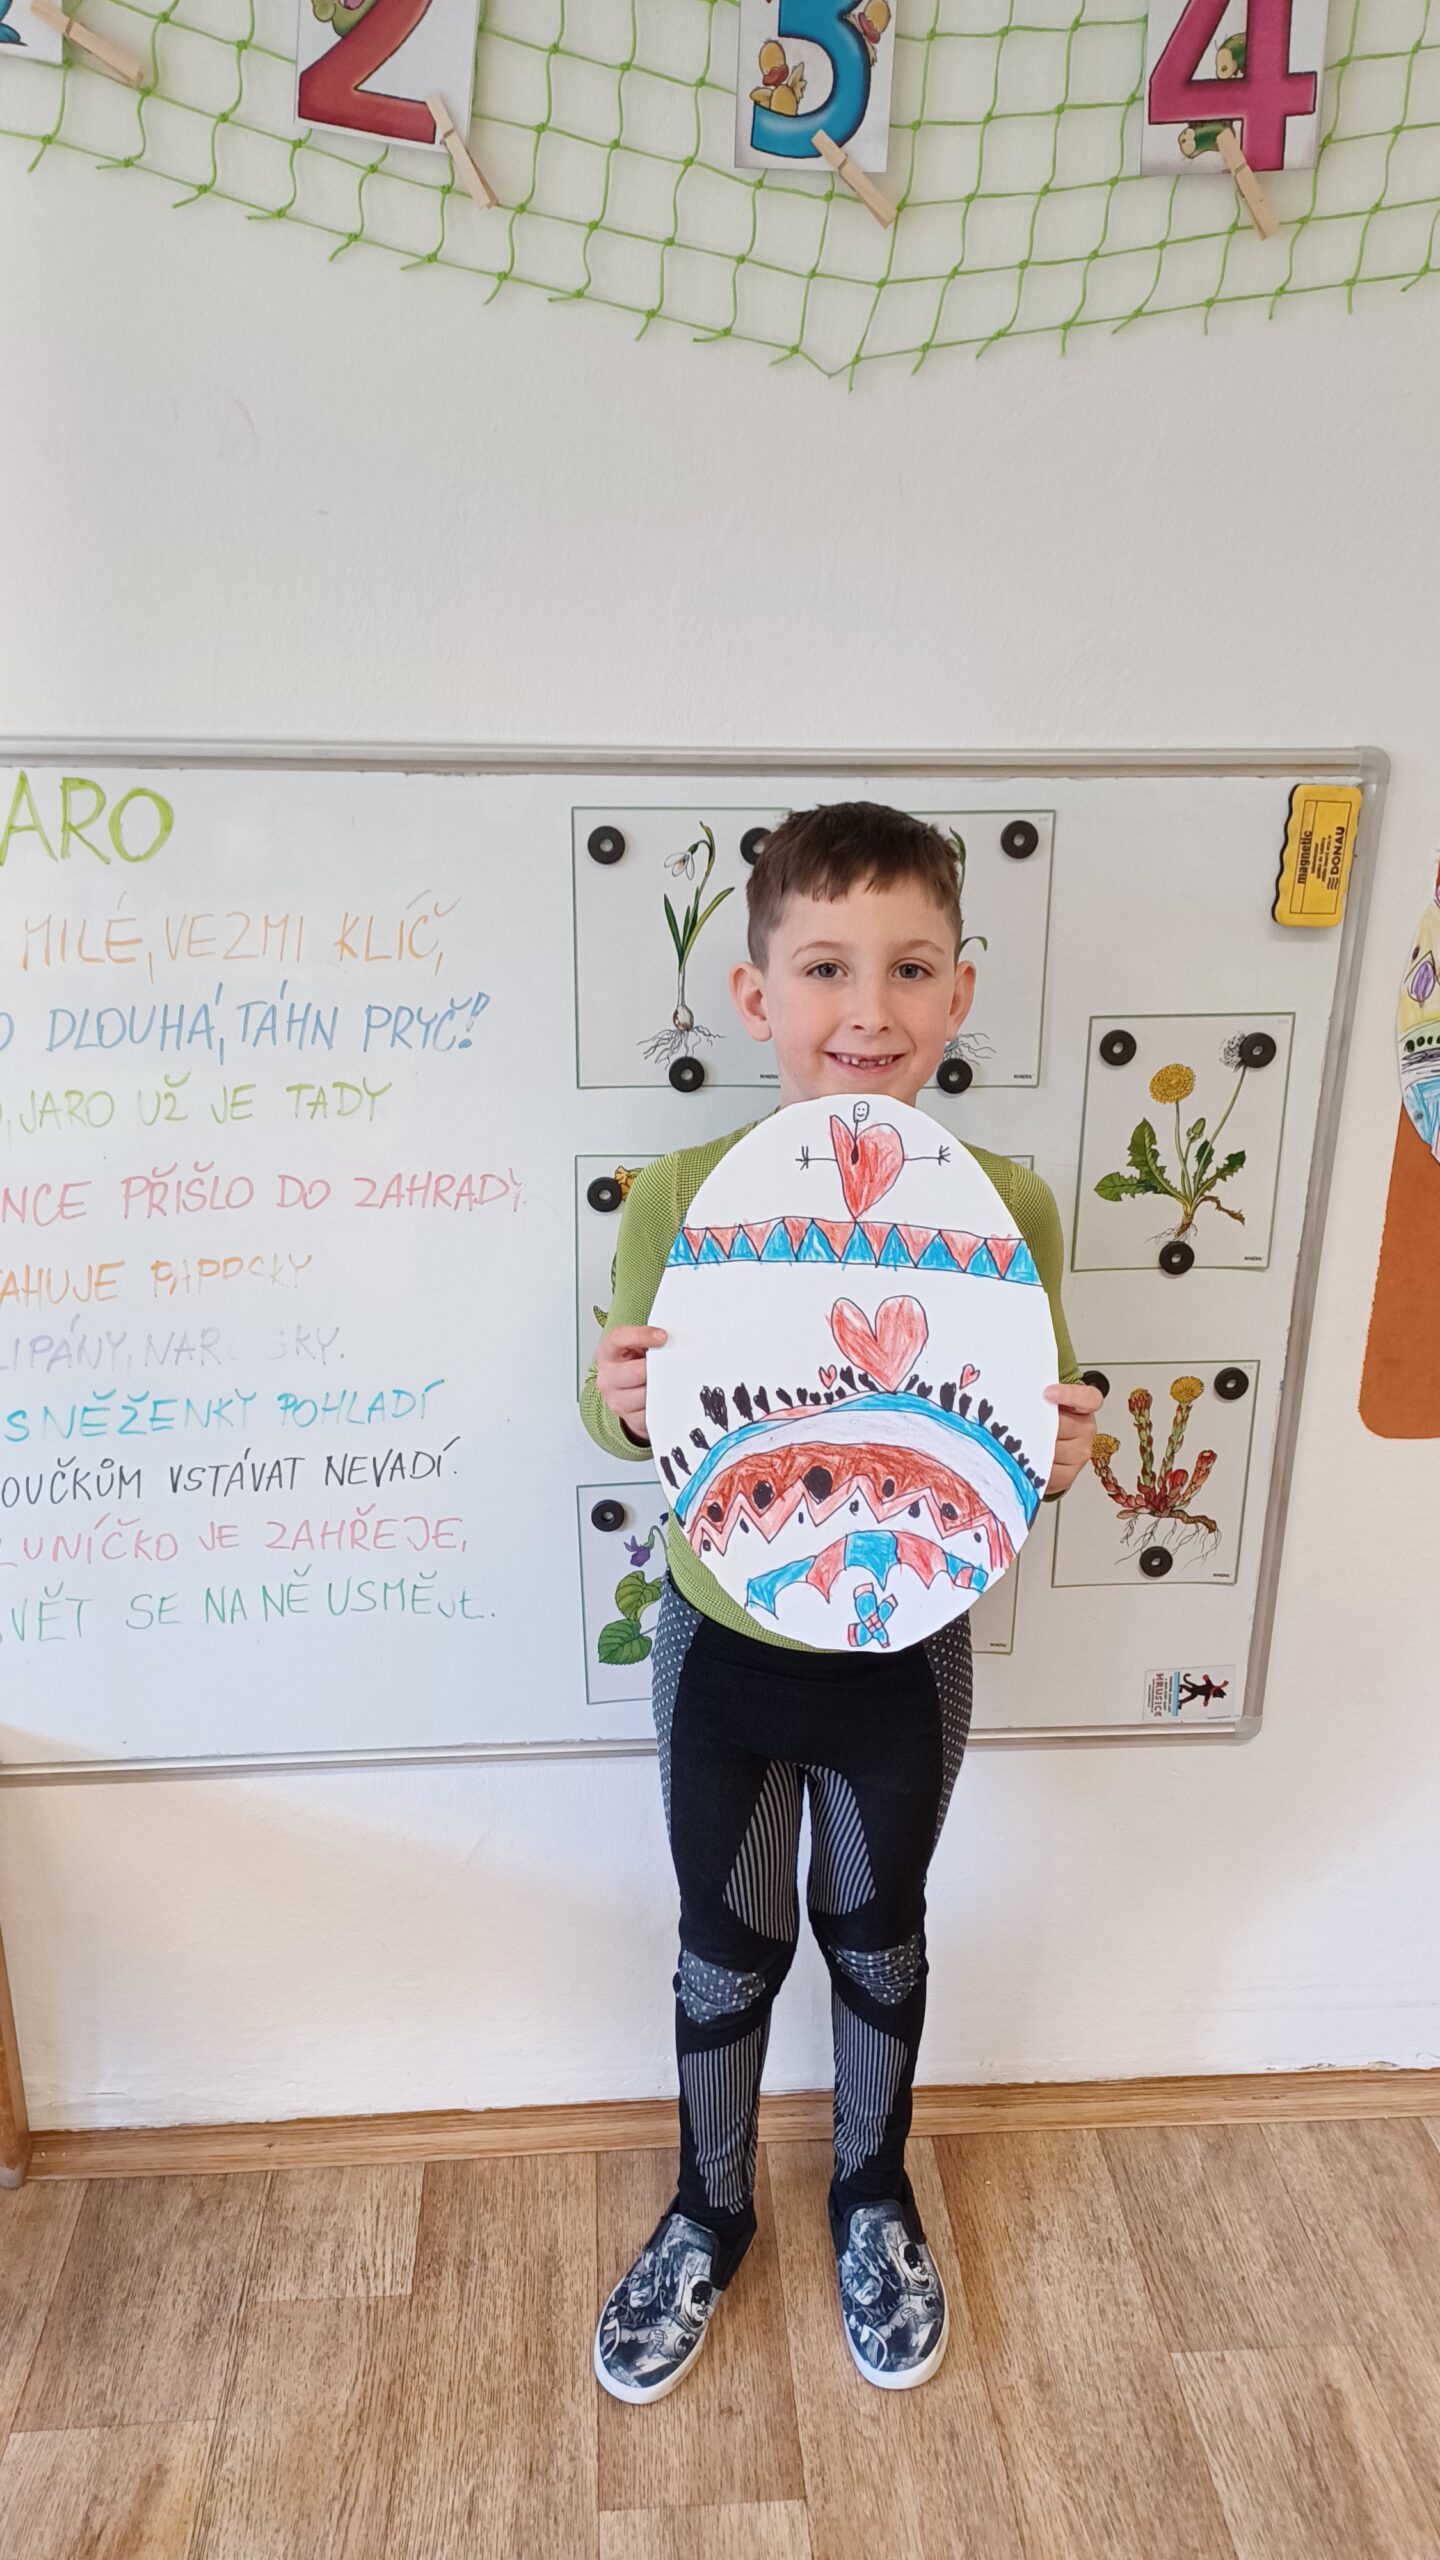 2
3
4
ARO
MILÉ, VEZMI KLÍČ,
O DLOUHÁ, TÁHN PRYČ!
, JARO UŽ JE TADY
NCE PŘIŠLO DO ZAHRADY.
AHUJE PAPRSKY
LIPÁNY, NARCISKY.
SNĚŽENKY POHLADÍ
OUČKŮM VSTÁVAT NEVADÍ.
LUNÍČKO JE ZAHŘEJE,
SVĚT SE NA NĚ USMĚJE.
magnetic
DONAU
MRUSICE